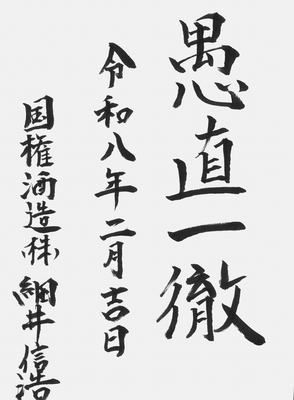 愚直一徹
令和八年二月吉日
国権酒造㈱ 細井信浩